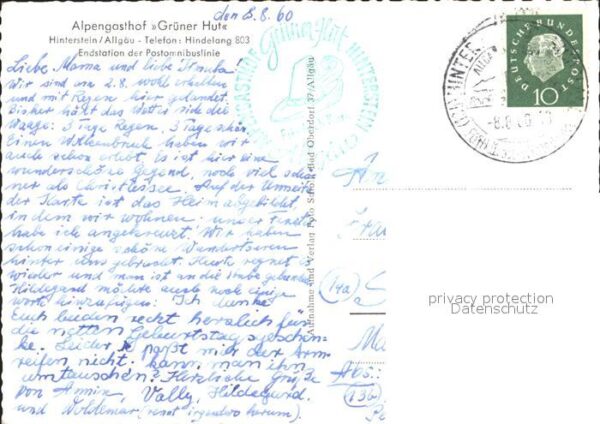 den 8.8.60
Alpengasthof »Grüner Hut«
Hinterstein/Allgäu - Telefon: Hindelang 803
Endstation der Postomnibuslinie
Liebe Mama und liebe
Wir sind am 2.8. wohl erhalten
und mit Regen hier gelandet.
Bisher hält das Wetter sich die
Waage: 3 Tage Regen, 3 Tage schön.
Einen Wolkenbruch haben wir
auch schon erlebt. Es ist hier eine
wunderschöne Gegend, noch viel schö-
ner als Christlessee. Auf der Umseite
der Karte ist das Heim abgebildet
in dem wir wohnen. unser Fenster
habe ich angekreuzt. Wir haben
schon einige schöne Wandertouren
hinter uns gebracht. Heute regnet es
wieder und man ist an die Stube gebunden.
Hildegard möchte auch noch einige
Worte hinzufügen: Ich danke
Euch beiden recht herzlich für
die netten Geburtstagsgeschen-
ke. Leider paßt mir der Arm-
reifen nicht. kann man ihn
umtauschen? Herzliche Grüße
von Armin, Vally, Hildegard.
und Woldemar (rennt irgendwo herum).
Grüner Hut HINTERSTEIN
Aufnahme und Verlag Foto Schölz, Bad Oberdorf 37/Allgäu
DEUTSCHE BUNDESPOST
10
HINTERSTEIN
-8.8.60
An
(14a)
Abs.:
(13b)
privacy protection
Datenschutz